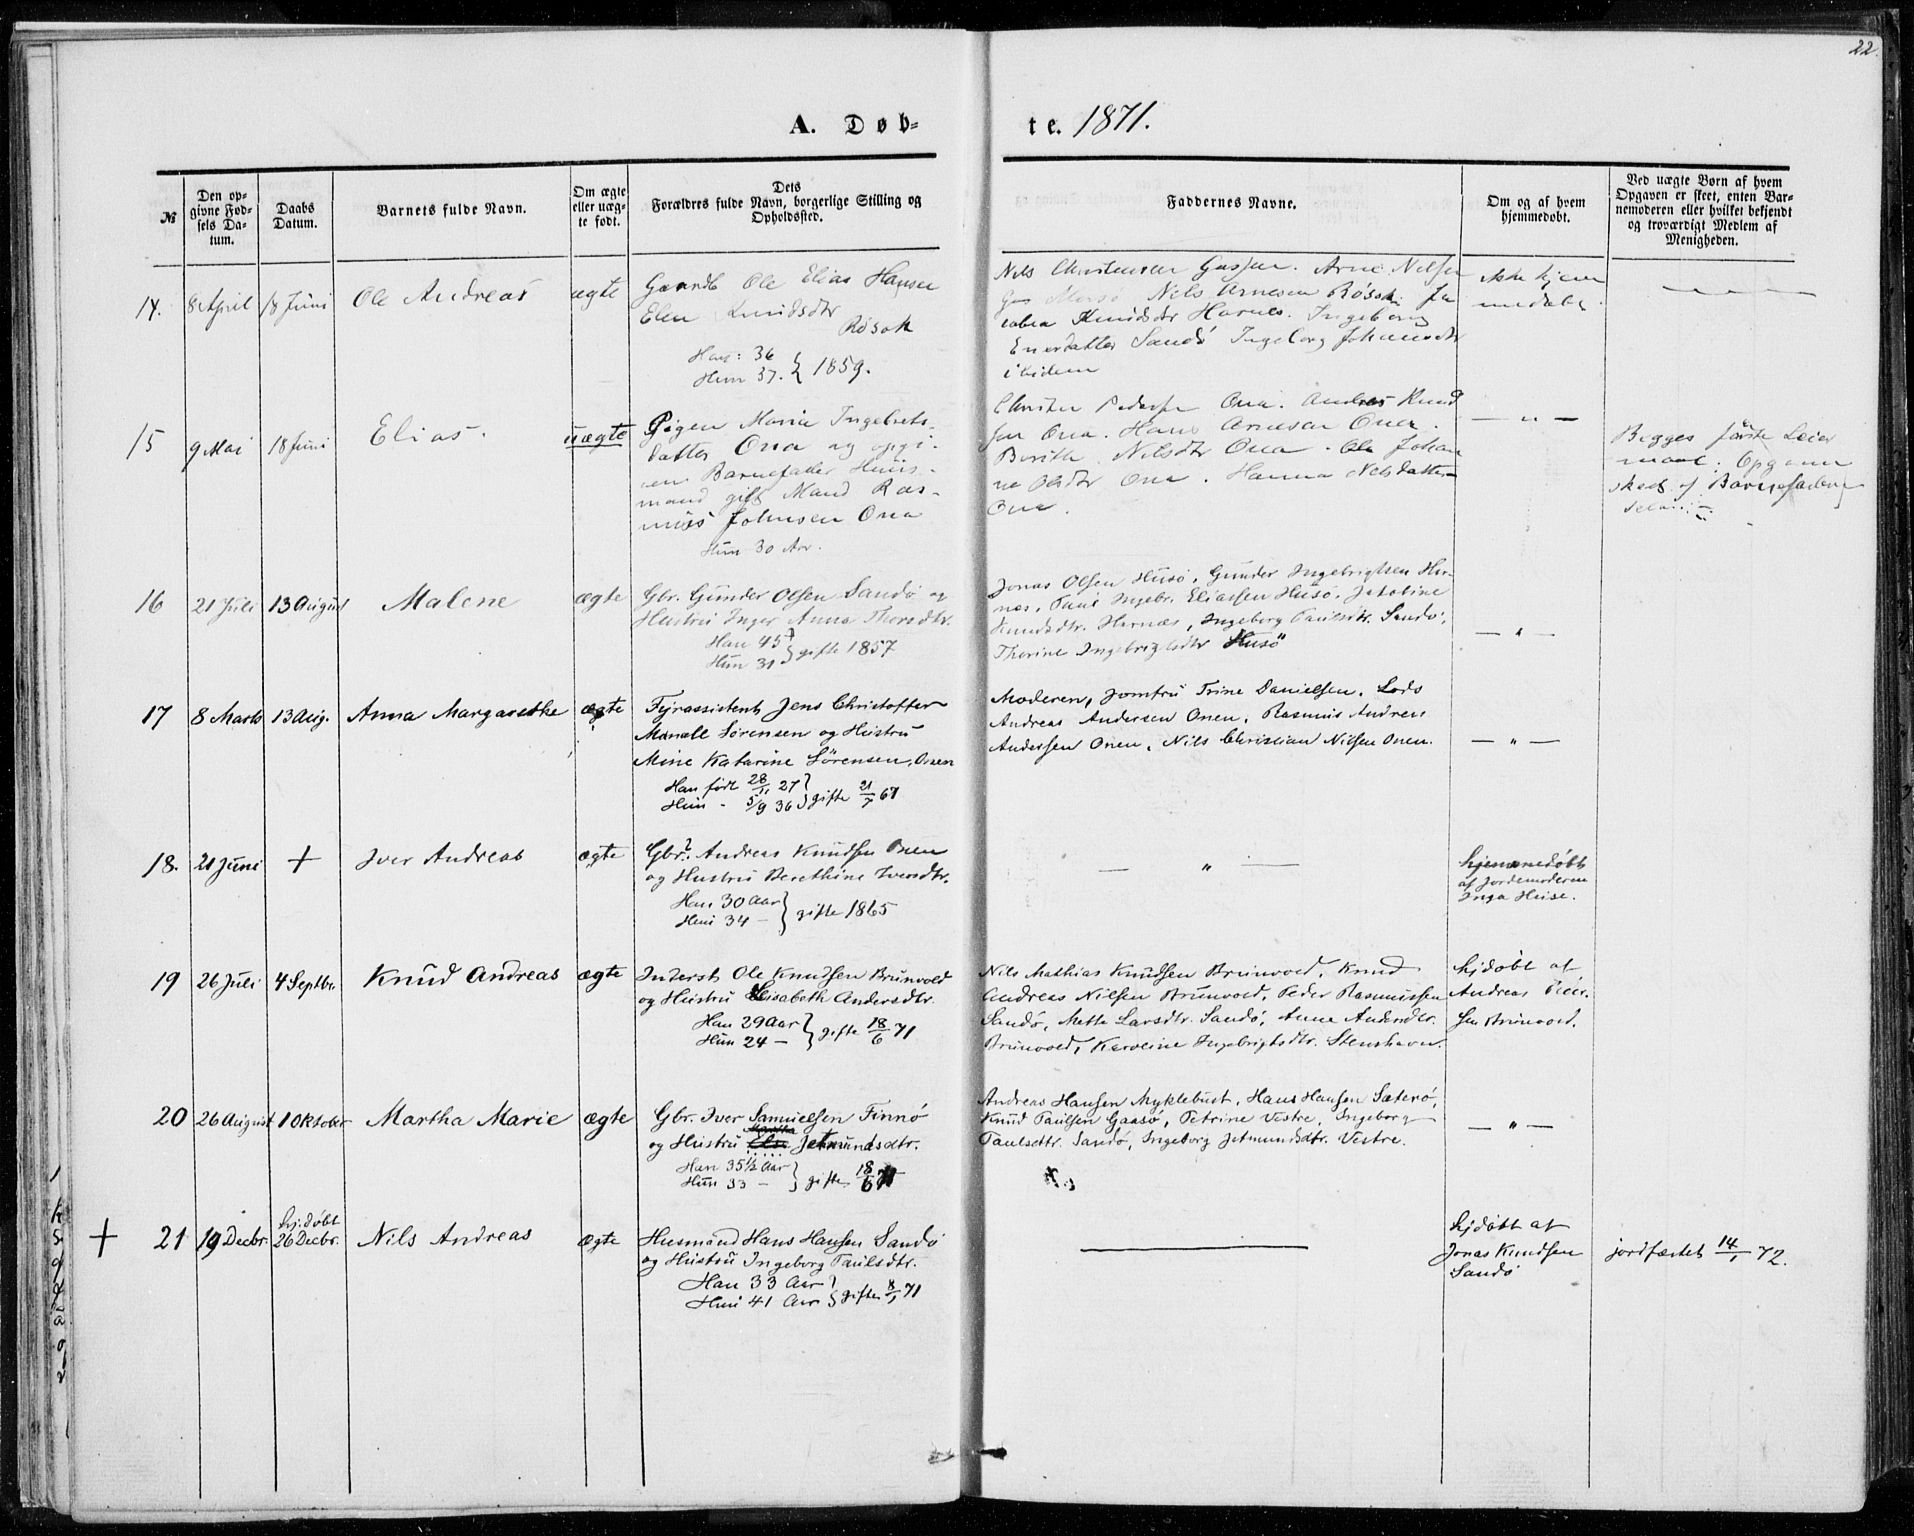 22.
A. Døb-
te. 1871.
№
Den op-
givne Fød-
sels Da-
tum.
Daabs
Datum.
Barnets fulde Navn.
Om ægte
eller uæg-
te født.
Dets
Forældres fulde Navn, borgerlige Stilling og
Opholdssted.
Faddernes Navne.
Om og af hvem
hjemmedøbt.
Ved uægte Børn af hvem
Opgaven er skeet, enten Bar-
nemoderen eller hvilket bekjendt
og troværdigt Medlem af
Menigheden.
14. 8 April 18 Juni Ole Andreas ægte
Ole Elias Hansen
Elen Knudsdtr
Røsok
Han: 36
Hun 37. } 1859.
Nils Christensen Arne Nilsen
Nils Arnesen Røsok. Ja
cobea Knudsdtr Harnes. Ingeborg
Enersdatter Sandø Ingeborg Johansdtr
ibidem
ikke hjem
medøbt.
15 9 Mai 18 Juni Elias. uægte
Pigen Maria Ingebrets-
datter Ona og opgi-
ven Barnefader Huus-
mand gift Mand Ras-
mus Johnsen Ona
Hun 30 Aar.
Christen Pedersen Ona. Andreas Knud
sen Ona. Hans Arnesen Ona.
Berithe Nilsdtr Ona. Johan
ne Olsdtr Ona. Hanna Nilsdatter
Ona.
— „ —
Begges første Leier
maal: Opgaven
skeet af Barnefaderen
selv.
16 21 Juli 13 August Malene ægte
Gbr. Gunder Olsen Sandø og
Hustru Inger Anna Thorsdtr.
Han 45
Hun 31 } gifte 1857
Jonas Olsen Husø, Gunder Ingebrigtsen Har-
nes, Paul Ingebr. Eliassen Husø, Jakobine
Knudsdtr. Harnæs, Ingeborg Paulsdtr. Sandø,
Thorine Ingebrigtsdtr Husø
— „ —
17 8 Marts 13 Aug. Anna Margarethe ægte
Fyrassistent Jens Christoffer
Sørensen og Hustru
Mine Katarine Sørensen, Onen
Han født 28/11 27
Hun - 5/9 36 } gifte 21/7 67
Moderen, Jomfru Trine Danielsen, Lods
Andreas Andersen Onen, Rasmus Andreas
Andersen Onen, Nils Christian Nilsen Onen.
— „ —
18. 21 Juni + Iver Andreas ægte
Gbr. Andreas Knudsen Onen
og Hustru Berethine Iversdtr.
Han 30 Aar
Hun 34 — } gifte 1865
— „ —
hjemmedøbt
af Jordemoderen
Inga Huse.
19 26 Juli 4 Septbr. Knud Andreas ægte
Inderst Ole Knudsen Brunvold
og Hustru Elisabeth Andersdtr.
Han 29 Aar
Hun 24 — } gifte 18/6 71
Nils Mathias Knudsen Brunvold, Knud
Andreas Nilsen Brunvold, Peder Rasmussen
Sandø, Mette Larsdtr. Sandø, Anne Andersdtr.
Brunvold, Karoline Ingebrigtsdtr. Stenshavn.
hjdøbt af
Andreas Peder-
sen Brunvold.
20 26 August 1 Oktober Martha Marie ægte
Gbr. Iver Samuelsen Finnø
Martha
og Hustru Else Jetmundsdtr.
Han 35½ Aar
Hun 33 — } gifte 18/6 71
Andreas Hansen Myklebust, Hans Hansen Sæterø,
Knud Paulsen Gaasø, Petrine Vestre, Ingeborg
Paulsdtr. Sandø, Ingeborg Jetmundsdtr. Vestre.
— „ —
+ 21 19 Decbr. hj.døbt
26 Decbr. Nils Andreas ægte
Husmand Hans Hansen Sandø
og Hustru Ingeborg Paulsdtr.
Han 33 Aar
Hun 41 Aar } gifte 8/1 71
hjdøbt af
Jonas Knudsen
Sandø
jordfæstet 14/1 72.